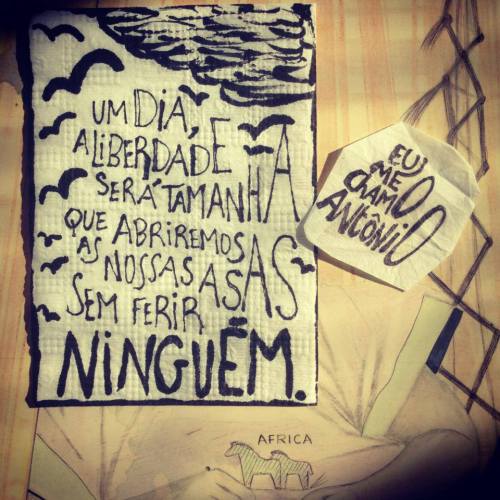 UM DIA,
A LIBERDADE
SERÁ TAMANHA
QUE ABRIREMOS
AS NOSSAS ASAS
SEM FERIR
NINGUÉM.
EU
ME
CHAMO
ANTÔNIO
AFRICA